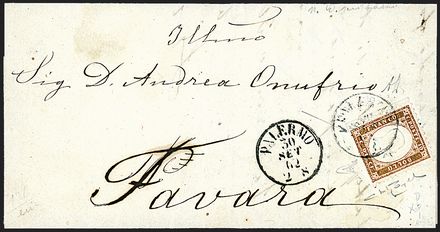 Illmo
Sig D. Andrea Onufrio
PALERMO
30
SET
62
2 S
Favara
BOLLO